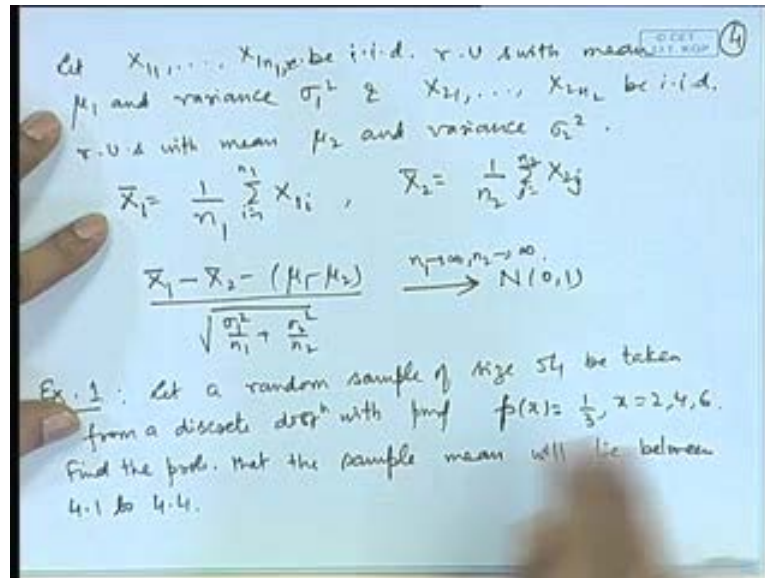 Let X₁₁, ...., X₁ₙ₁ be i.i.d. r.v.s with mean
μ₁ and variance σ₁² & X₂₁, ..., X₂ₙ₂ be i.i.d.
r.v.s with mean μ₂ and variance σ₂².
X̄₁ = 1/n₁ Σ X₁ᵢ , X̄₂ = 1/n₂ Σ X₂ⱼ
X̄₁ - X̄₂ - (μ₁-μ₂) / √(σ₁²/n₁ + σ₂²/n₂) → N(0,1)
n₁→∞, n₂→∞.
Ex. 1: Let a random sample of size 54 be taken
from a discrete distⁿ with pmf p(x) = 1/3, x = 2, 4, 6.
Find the prob. that the sample mean will lie between
4.1 to 4.4.
4